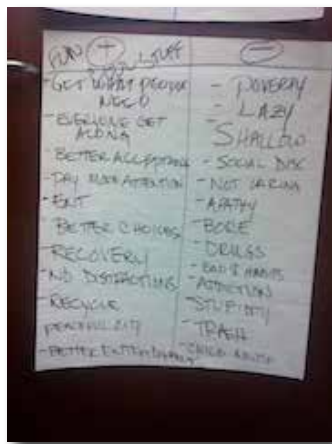 FUN + STUFF
- GET WHAT PEOPLE
NEED
- EVERYONE GET
ALONG
- BETTER ACCEPTANCE
- PAY MORE ATTENTION
- ENT
- BETTER CHOICES
- RECOVERY
- NO DISTRACTIONS
- RECYCLE
PEACEFUL CITY
- BETTER ENTERTAINMENT
-
- POVERTY
- LAZY
SHALLOW
- SOCIAL DISC
- NOT CARING
- APATHY
- BORE
- DRUGS
- BAD HABITS
- ADDICTION
- STUPIDITY
- TRASH
- CHILD ABUSE